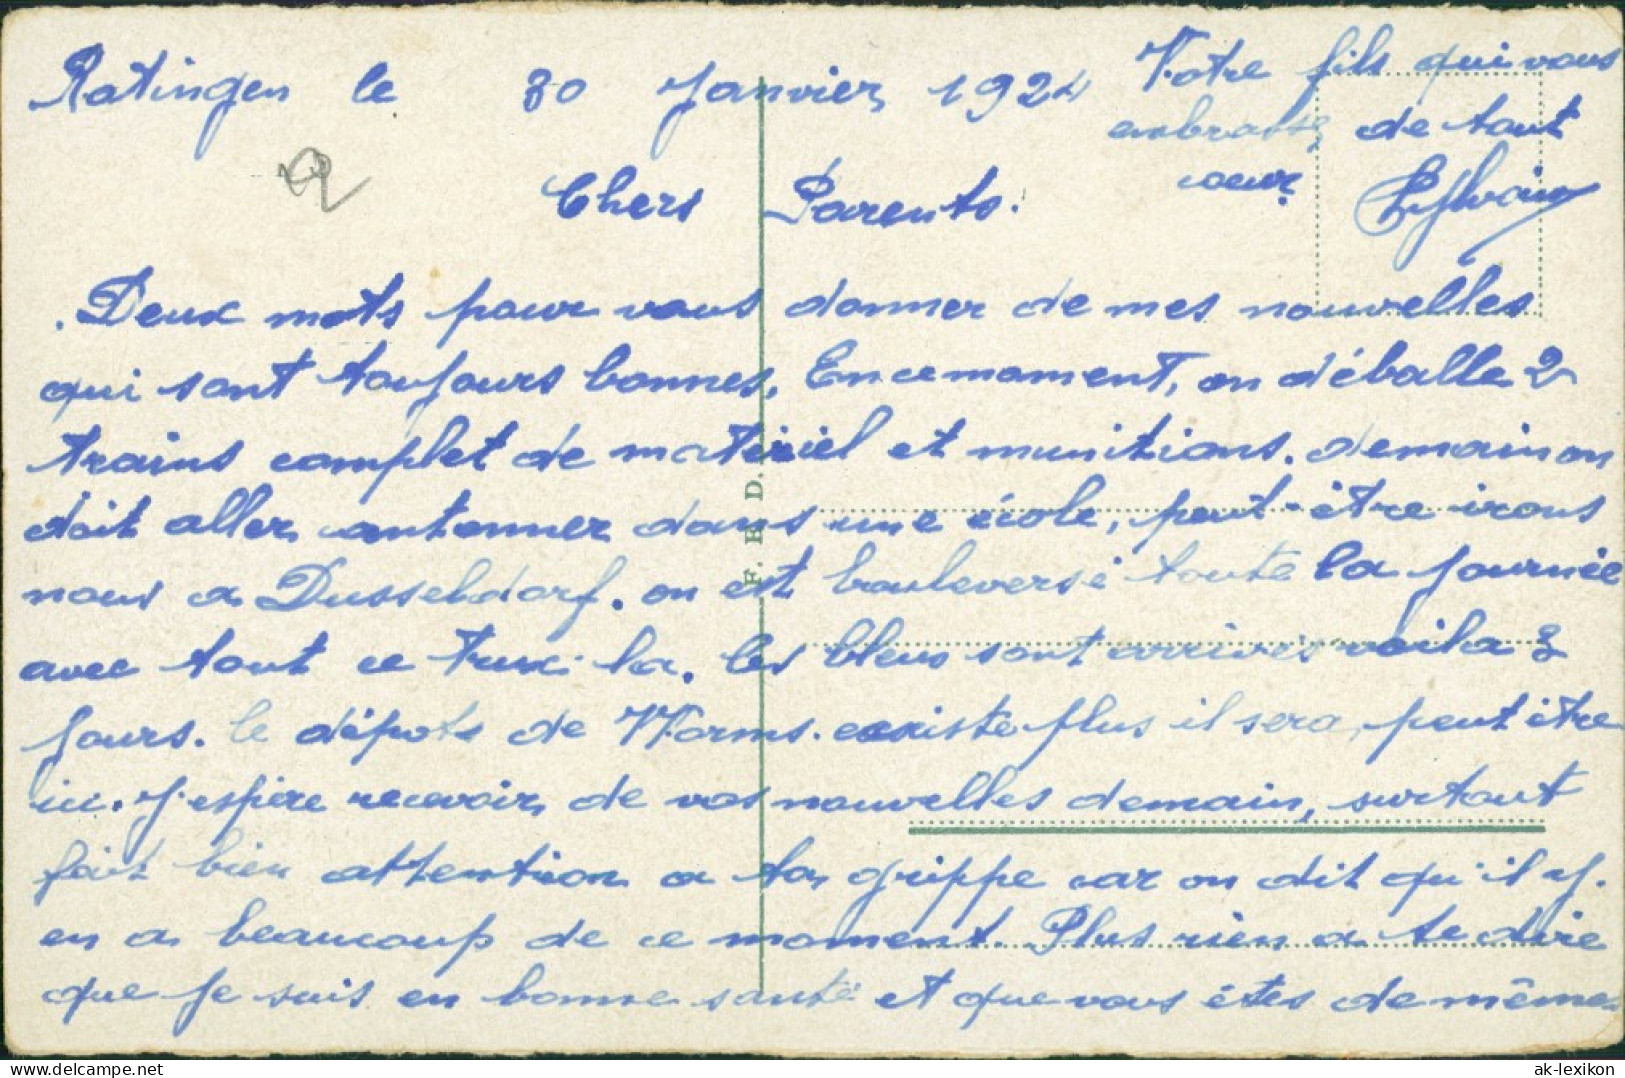 Ratingen le 30 Janvier 1924
Chers Parents.
. Deux mots pour vous donner de mes nouvelles
qui sont toujours bonnes, En ce moment, on déballe 2
trains complet de matériel et munitions. demain on
doit aller cantonner dans une école, peut-être irons
nous a Dusseldorf. on est bouleversé toute la journée
avec tout ce truc la. les bleus sont arrivés voila 3
jours. le dépots de Worms. existe plus il sera peut être
ici. J'espère recevoir de vos nouvelles demain, surtout
fait bien attention a ta grippe car on dit qu'il y.
en a beaucoup de ce moment. Plus rien a te dire
que je suis en bonne santé et que vous êtes de même
Votre fils qui vous
embrasse de tout
coeur
Sylvain
F. B. D.
www.delcampe.net
ak-lexikon